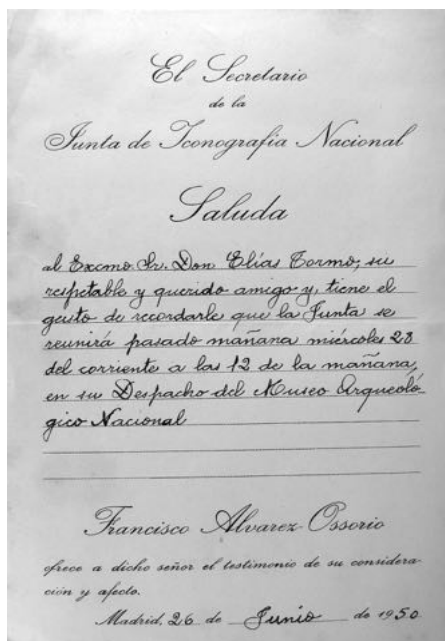 El Secretario
de la
Junta de Iconografía Nacional
Saluda
al Excmo Sr. Don Elías Tormo, su
respetable y querido amigo y, tiene el
gusto de recordarle que la Junta se
reunirá pasado mañana miércoles 28
del corriente a las 12 de la mañana,
en su Despacho del Museo Arqueoló-
gico Nacional
Francisco Alvarez-Ossorio
ofrece a dicho señor el testimonio de su considera-
ción y afecto.
Madrid, 26 de Junio de 1950